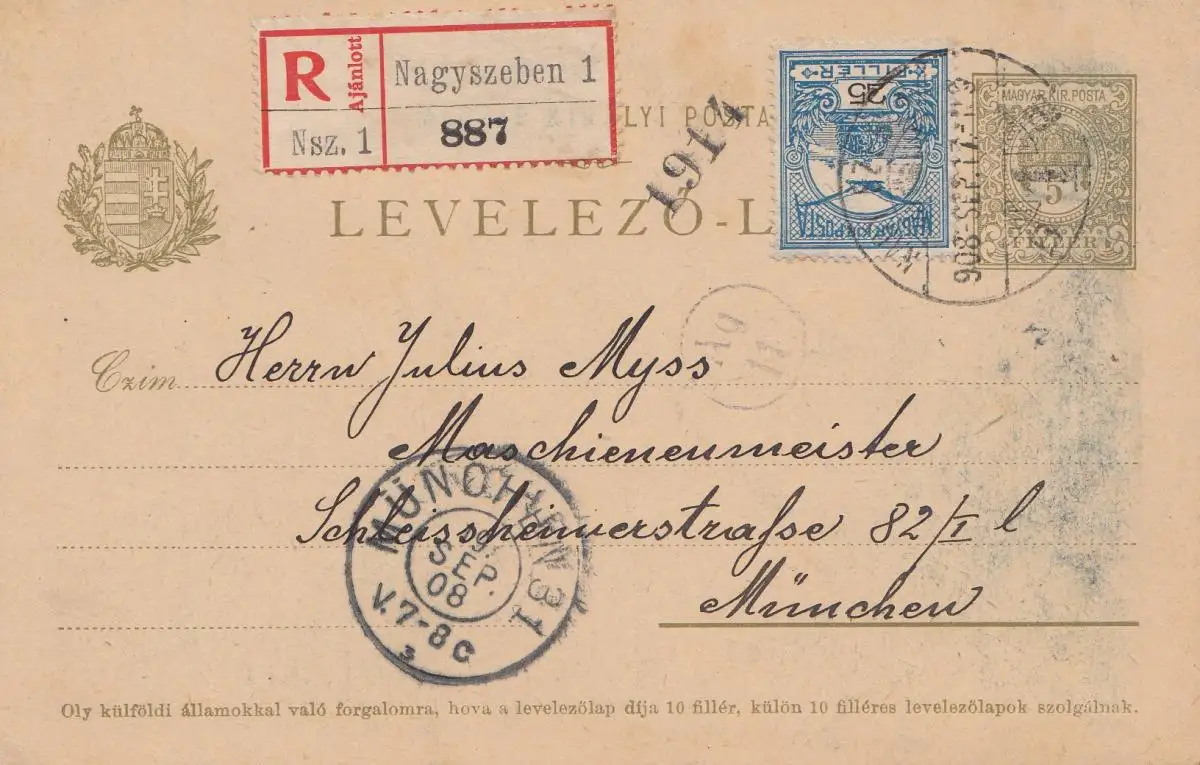 R Ajánlott
Nagyszeben 1
Nsz. 1
887
LYI POSTA
1914
LEVELEZŐ-L
25
FILLÉR
MAGYAR KIR. POSTA
MAGYAR KIR. POSTA
5
FILLÉR
906
Ag
11
Czim
Herrn Julius Myss
Maschienenmeister
Schleissheimerstraße 82/I l
München
MÜNCHEN 31
SEP.
08
V. 7-8
Oly külföldi államokkal való forgalomra, hova a levelezőlap díja 10 fillér, külön 10 filléres levelezőlapok szolgálnak.